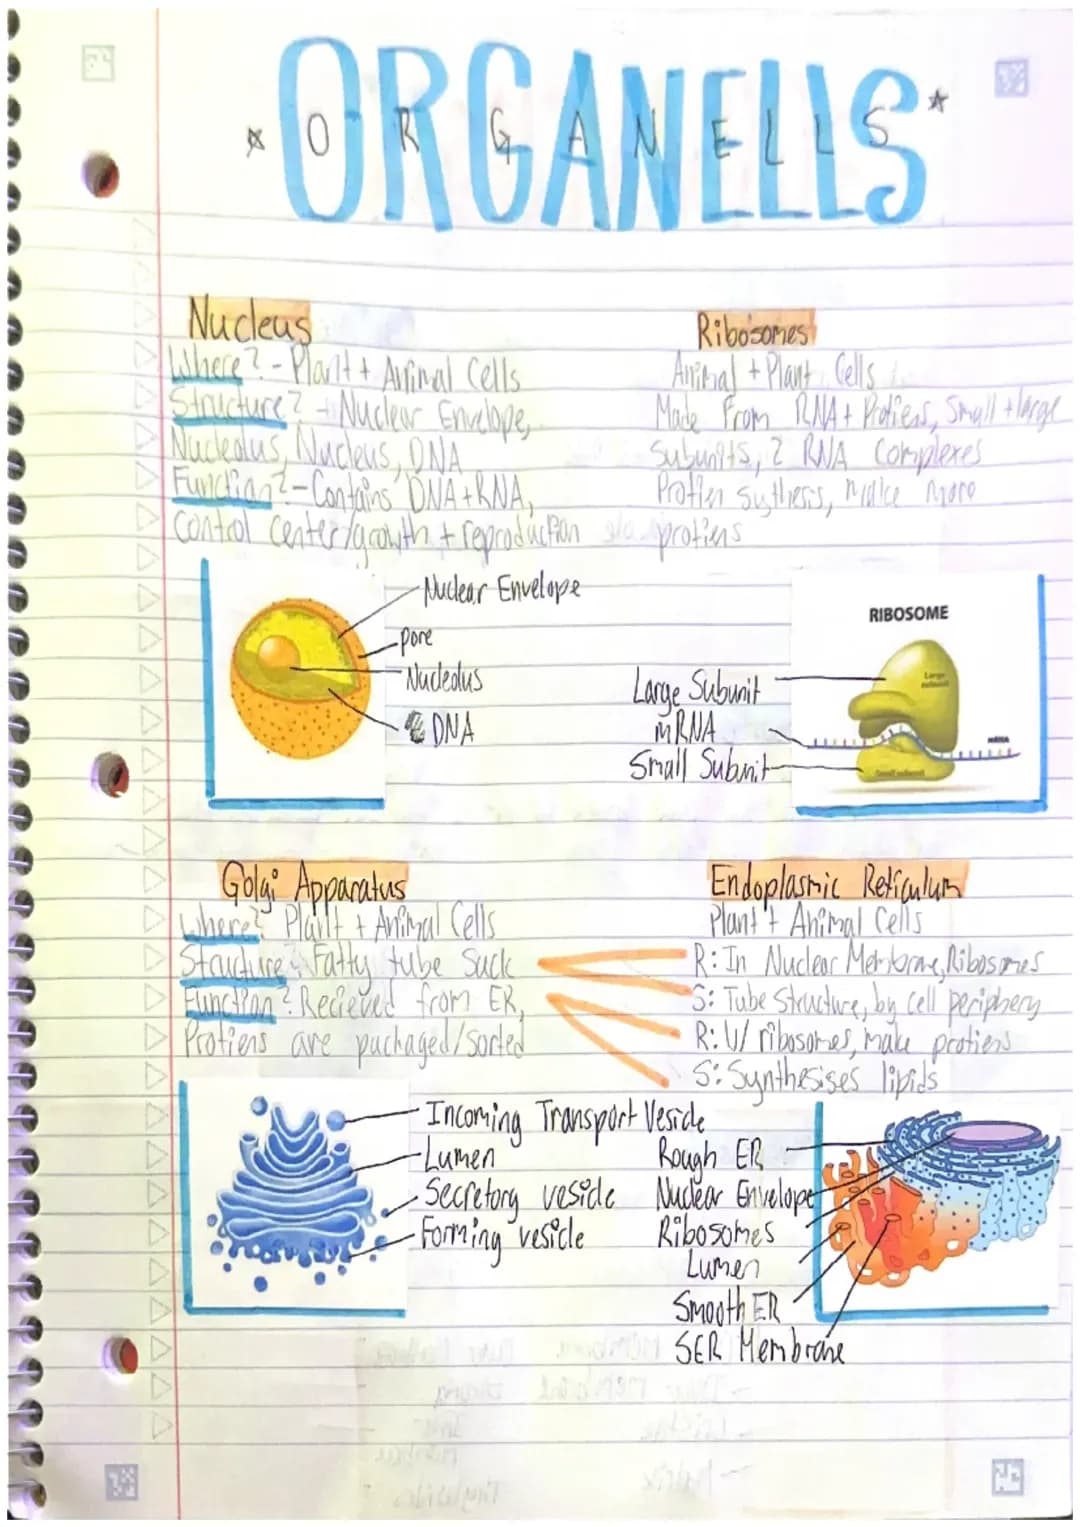 ORGANELLS
O R G A N E L L S
Nucleus
Where? - Plant + Animal Cells
Structure? - Nuclear Envelope,
Nucleolus, Nucleus, DNA
Function? - Contains DNA + RNA,
Control Center/growth + reproduction
Ribosomes
Animal + Plant Cells
Made From RNA + Protiens, Small + large
Subunits, 2 RNA Complexes
Protien Sythesis, make more
protiens
Nuclear Envelope
pore
Nucleolus
DNA
RIBOSOME
Large Subunit
mRNA
Small Subunit
Large
subunit
mRNA
Small subunit
Golgi Apparatus
Where? Plant + Animal Cells
Structure? Fatty tube Suck
Function? Recieved from ER,
Protiens are packaged/Sorted
Endoplasmic Reticulum
Plant + Animal Cells
R: In Nuclear Membrane, Ribosomes
S: Tube Structure, by cell periphery
R: W/ ribosomes, make protiens
S: Synthesises lipids
Incoming Transport Vesicle
Lumen
Secretory vesicle
Forming vesicle
Rough ER
Nuclear Envelope
Ribosomes
Lumen
Smooth ER
SER Membrane